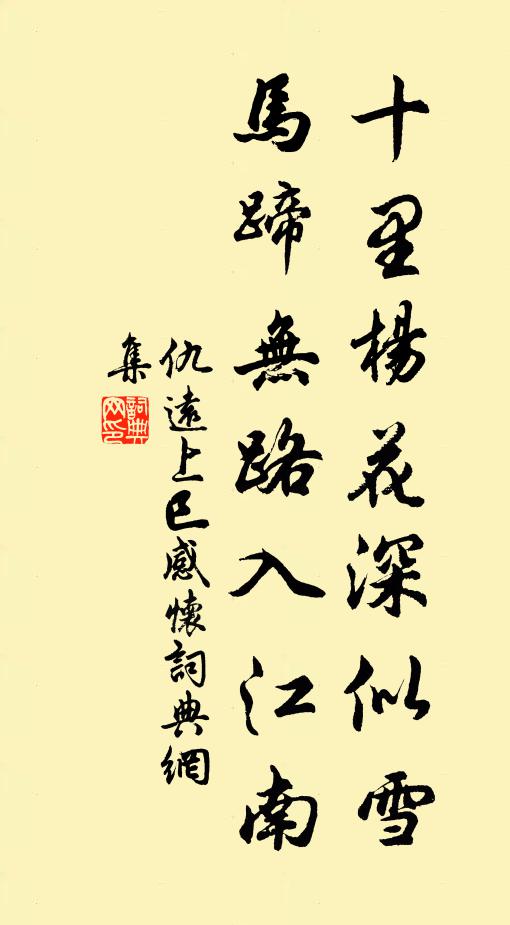 十里楊花深似雪
馬蹄無路入江南
仇遠上巳感懷詞典網
集
詞典
网印